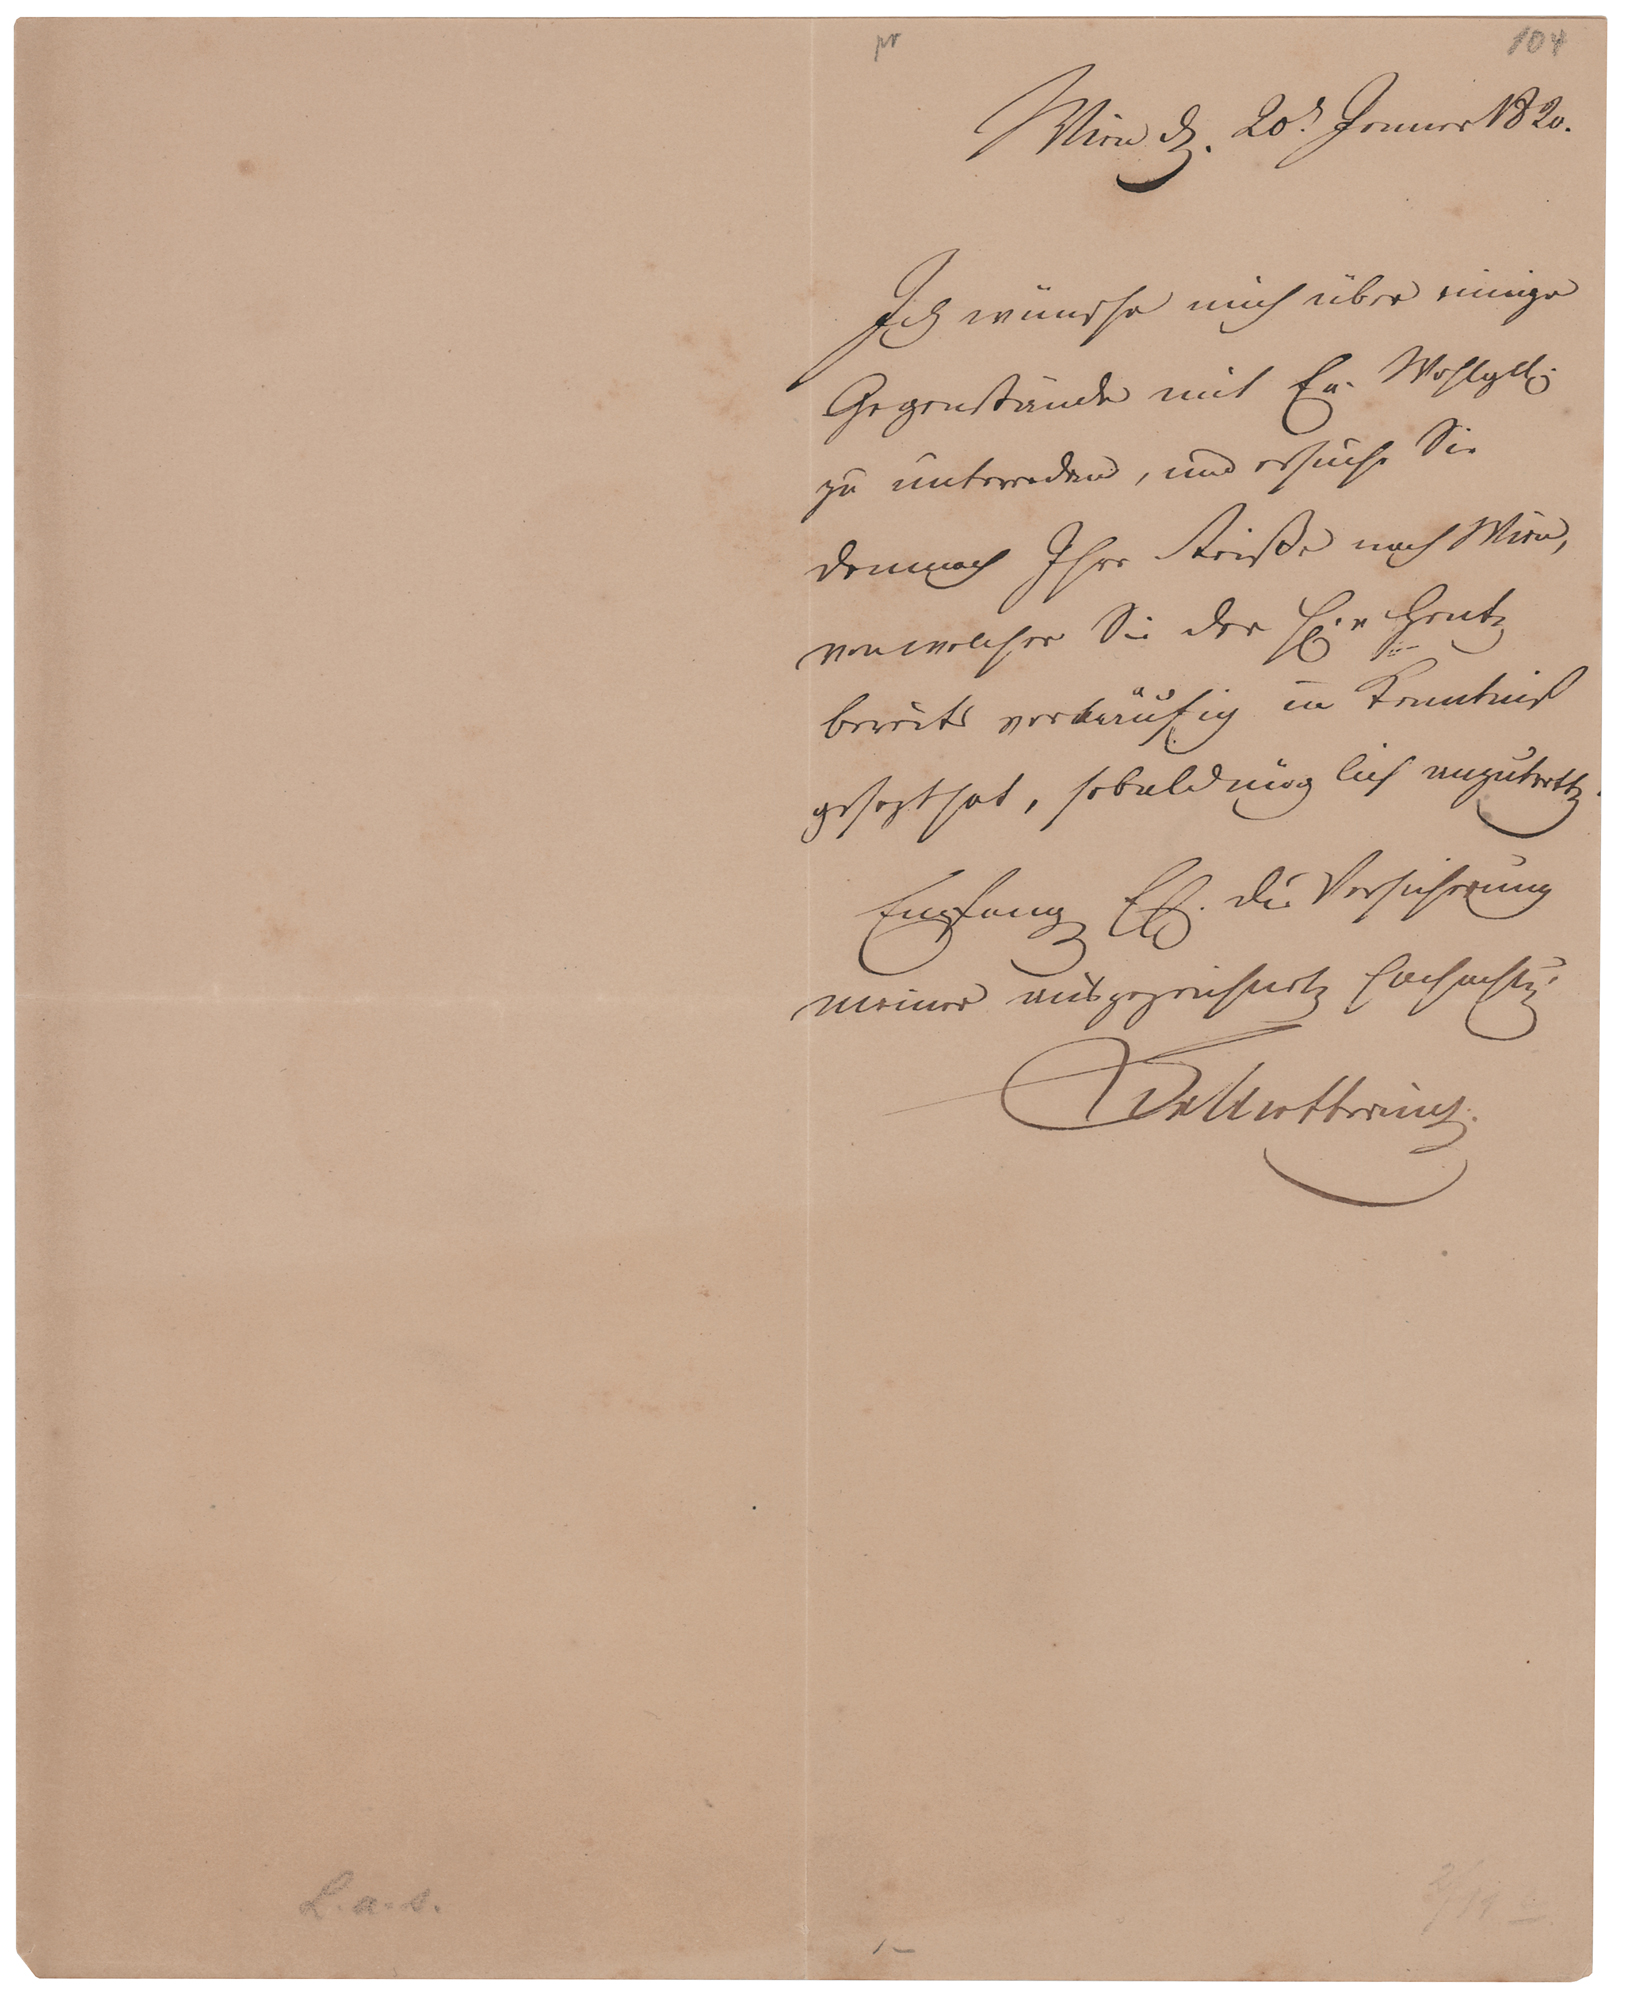 pr
104
Wien d. 20t Jenner 1820.
Ich wünsche mich über einige
Gegenstände mit Ew. Wohlgeb.
zu unterreden, und ersuche Sie
demnach Ihre Reiße nach Wien,
von welcher Sie der Hr. v Gentz
bereits vorläufig in Kenntniß
gesezt hat, sobald möglich anzutretten.
Empfangen Ew. die Versicherung
meiner ausgezeichneten Hochachtung
Metternich.
L.a.s.